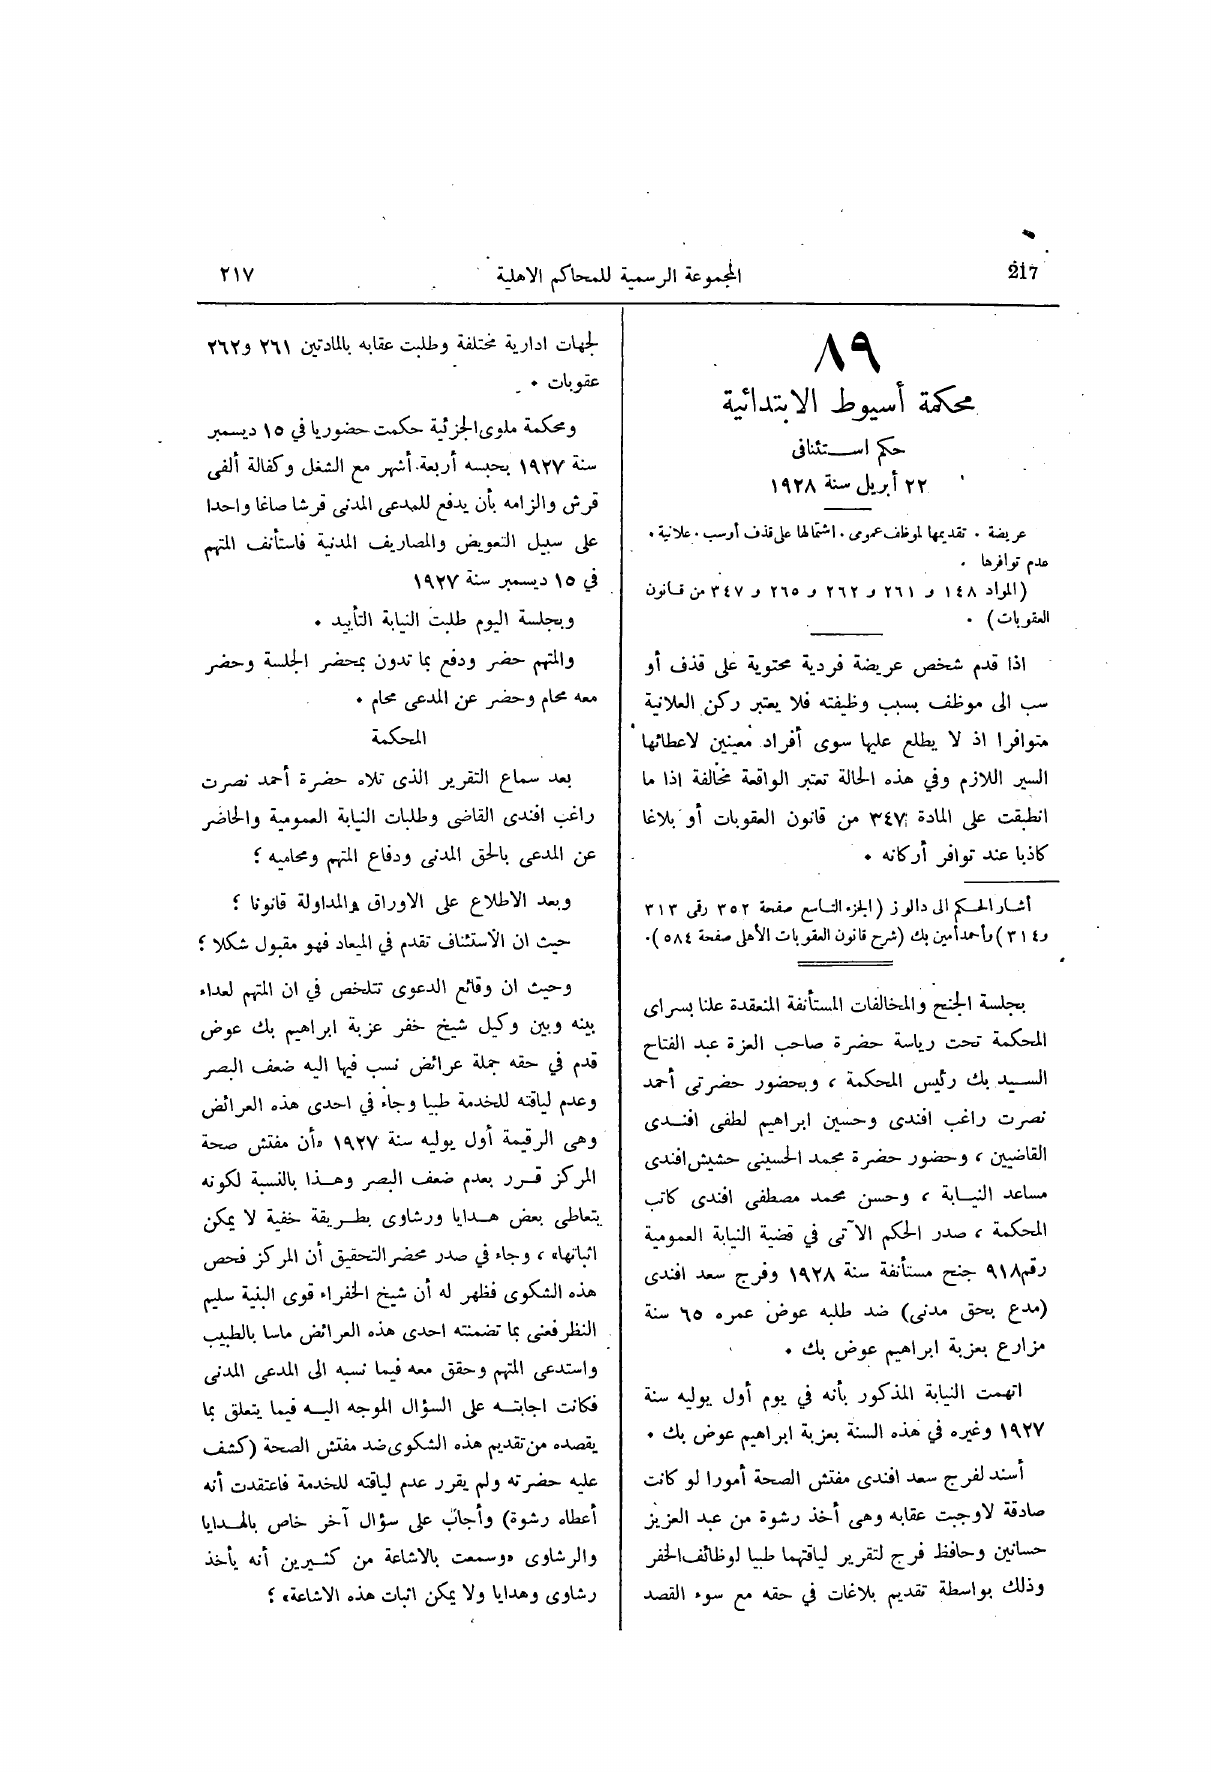 217
المجموعة الرسمية للمحاكم الاهلية
٢١٧
٨٩
محكمة أسيوط الابتدائية
حكم استئنافى
٢٢ أبريل سنة ١٩٢٨
عريضة . تقديمها لموظف عمومى . اشتمالها على قذف أوسب . علانية .
عدم توافرها .
(المواد ١٤٨ و ٢٦١ و ٢٦٢ و ٢٦٥ و ٣٤٧ من قانون
العقوبات) .
اذا قدم شخص عريضة فردية محتوية على قذف أو
سب الى موظف بسبب وظيفته فلا يعتبر ركن العلانية
متوافرا اذ لا يطلع عليها سوى أفراد معينين لاعطائها
السير اللازم وفي هذه الحالة تعتبر الواقعة مخالفة اذا ما
انطبقت على المادة ٣٤٧ من قانون العقوبات أو بلاغا
كاذبا عند توافر أركانه .
أشار الحكم الى دالوز (الجزء التاسع صفحة ٣٥٢ رقمى ٣١٣
و٣١٤) وأحمد أمين بك (شرح قانون العقوبات الأهلى صفحة ٥٨٤).
بجلسة الجنح والمخالفات المستأنفة المنعقدة علنا بسراى
المحكمة تحت رياسة حضرة صاحب العزة عبد الفتاح
السيد بك رئيس المحكمة ، وبحضور حضرتى أحمد
نصرت راغب افندى وحسين ابراهيم لطفى افندى
القاضيين ، وحضور حضرة محمد الحسينى حشيش افندى
مساعد النيابة ، وحسن محمد مصطفى افندى كاتب
المحكمة ، صدر الحكم الآتى في قضية النيابة العمومية
رقم ٩١٨ جنح مستأنفة سنة ١٩٢٨ وفرج سعد افندى
(مدع بحق مدنى) ضد طلبه عوض عمره ٦٥ سنة
مزارع بعزبة ابراهيم عوض بك .
اتهمت النيابة المذكور بأنه في يوم أول يوليه سنة
١٩٢٧ وغيره في هذه السنة بعزبة ابراهيم عوض بك .
أسند لفرج سعد افندى مفتش الصحة أمورا لو كانت
صادقة لاوجبت عقابه وهى أخذ رشوة من عبد العزيز
حسانين وحافظ فرج لتقرير لياقتهما طبيا لوظائف الخفر
وذلك بواسطة تقديم بلاغات في حقه مع سوء القصد
لجهات ادارية مختلفة وطلبت عقابه بالمادتين ٢٦١ و٢٦٢
عقوبات .
ومحكمة ملوى الجزئية حكمت حضوريا في ١٥ ديسمبر
سنة ١٩٢٧ بحبسه أربعة أشهر مع الشغل وكفالة ألفى
قرش والزامه بأن يدفع للمدعى المدنى قرشا صاغا واحدا
على سبيل التعويض والمصاريف المدنية فاستأنف المتهم
في ١٥ ديسمبر سنة ١٩٢٧
وبجلسة اليوم طلبت النيابة التأييد .
والمتهم حضر ودفع بما تدون بمحضر الجلسة وحضر
معه محام وحضر عن المدعى محام .
المحكمة
بعد سماع التقرير الذى تلاه حضرة أحمد نصرت
راغب افندى القاضى وطلبات النيابة العمومية والحاضر
عن المدعى بالحق المدنى ودفاع المتهم ومحاميه ؛
وبعد الاطلاع على الاوراق والمداولة قانونا ؛
حيث ان الاستئناف تقدم في الميعاد فهو مقبول شكلا ؛
وحيث ان وقائع الدعوى تتلخص في ان المتهم لعداء
بينه وبين وكيل شيخ خفر عزبة ابراهيم بك عوض
قدم في حقه جملة عرائض نسب فيها اليه ضعف البصر
وعدم لياقته للخدمة طبيا وجاء في احدى هذه العرائض
وهى الرقيمة أول يوليه سنة ١٩٢٧ «أن مفتش صحة
المركز قرر بعدم ضعف البصر وهذا بالنسبة لكونه
يتعاطى بعض هدايا ورشاوى بطريقة خفية لا يمكن
اثباتها» ، وجاء في صدر محضر التحقيق أن المركز فحص
هذه الشكوى فظهر له أن شيخ الخفراء قوى البنية سليم
النظر فعنى بما تضمنته احدى هذه العرائض ماسا بالطبيب
واستدعى المتهم وحقق معه فيما نسبه الى المدعى المدنى
فكانت اجابته على السؤال الموجه اليه فيما يتعلق بما
يقصده من تقديم هذه الشكوى ضد مفتش الصحة (كشف
عليه حضرته ولم يقرر عدم لياقته للخدمة فاعتقدت أنه
أعطاه رشوة) وأجاب على سؤال آخر خاص بالهدايا
والرشاوى «وسمعت بالاشاعة من كثيرين أنه يأخذ
رشاوى وهدايا ولا يمكن اثبات هذه الاشاعة» ؛